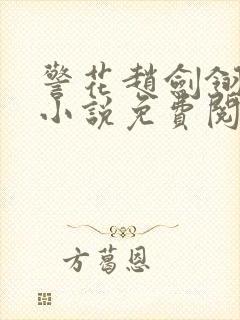 警花趙劍翎
小說免費閱
方葛恩